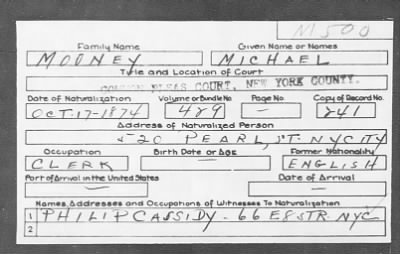 M500
Family Name Given Name or Names
MOONEY MICHAEL
Title and Location of Court
COMMON PLEAS COURT, NEW YORK COUNTY.
Date of Naturalization Volume or Bundle No. Page No. Copy of Record No.
OCT-17-1874 429 — 241
Address of Naturalized Person
520 PEARL, ST. N Y CITY
Occupation Birth Date or Age Former Nationality
CLERK — ENGLISH
Port of Arrival in the United States Date of Arrival
— —
Names, Addresses and Occupations of Witnesses To Naturalization
1 PHILIP CASSIDY - 66 E 8 STR. NYC
2